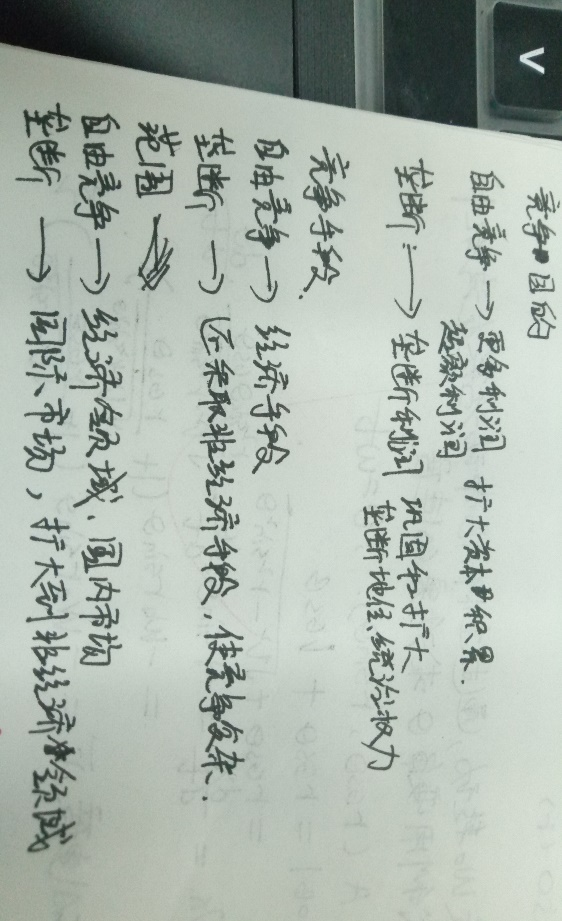 V
竞争目的
自由竞争 → 更多利润 扩大资本积累.
超额利润
垄断: → 垄断利润 巩固和扩大
垄断地位、统治权力
竞争手段.
自由竞争 → 经济手段
垄断 → 还采取非经济手段, 使竞争复杂.
范围
自由竞争 → 经济领域、国内市场
垄断 → 国际市场, 扩大到非经济领域